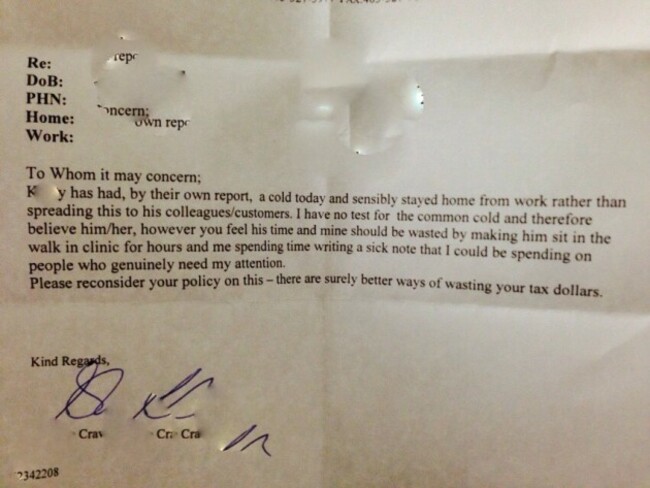 Re:
repo
DoB:
PHN:
Home: oncern;
own repo
Work:
To Whom it may concern;
K y has had, by their own report, a cold today and sensibly stayed home from work rather than
spreading this to his colleagues/customers. I have no test for the common cold and therefore
believe him/her, however you feel his time and mine should be wasted by making him sit in the
walk in clinic for hours and me spending time writing a sick note that I could be spending on
people who genuinely need my attention.
Please reconsider your policy on this – there are surely better ways of wasting your tax dollars.
Kind Regards,
Crav Cra Cra
2342208